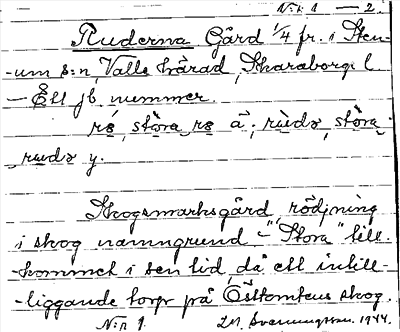 N:r 1 — 2.
Ruderna Gård 1/4 fr. i Sten-
-um s:n, Valle härad, Skaraborgs l
- Ett jb. nummer.
stòra å; rùdə, stòra
rudə y.
Skogsmarksgård, rödjning
i skog namngrund - "Stora" till-
-kommet i sen tid, då ett intill-
-liggande torp på Östtomtens skog.
N:r 1. 1944.